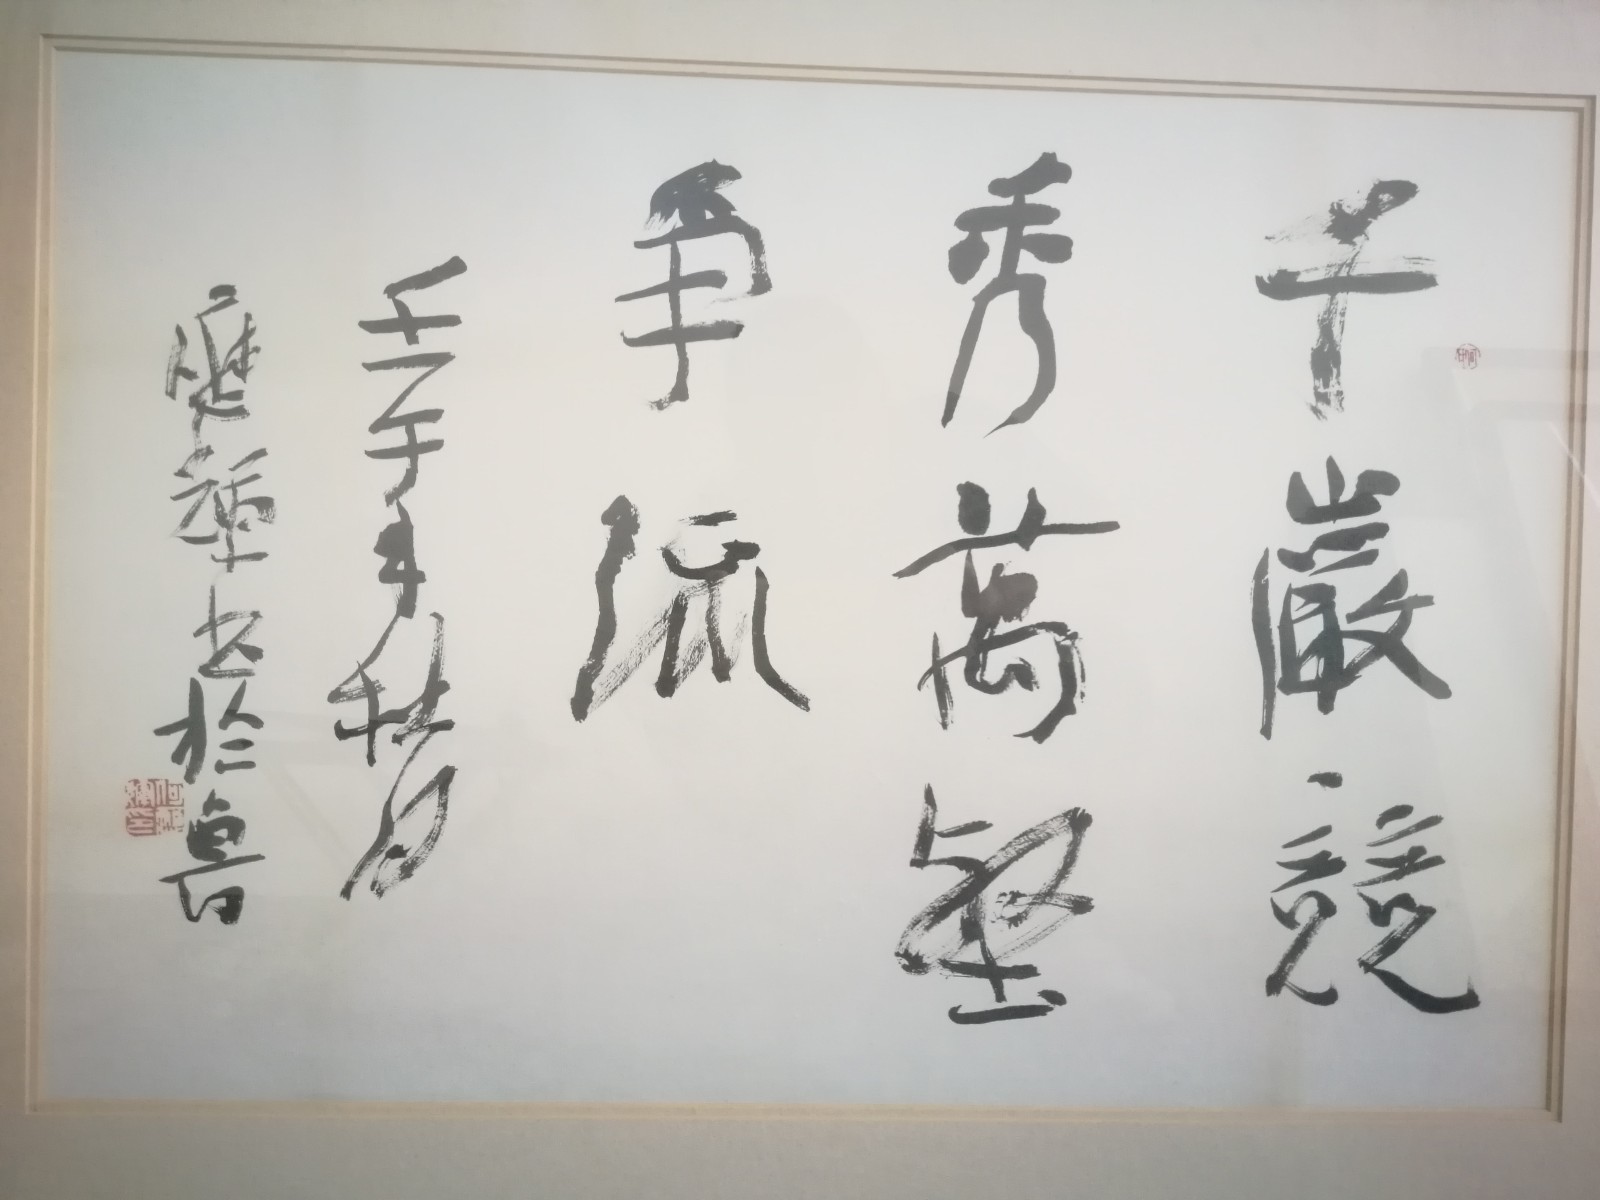 千巖競
秀萬壑
爭流
壬午年秋月
應輝書於魯